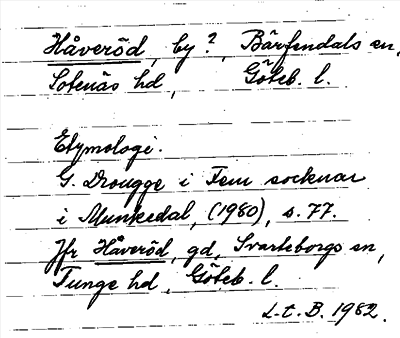 Håveröd, by?, Bärfendals sn,
Sotenäs hd, Göteb. l.
Etymologi.
G. Drougge i Fem socknar
i Munkedal, (1980), s. 77.
Jfr Håveröd, gd, Svarteborgs sn,
Tunge hd, Göteb. l.
L-t. B. 1982.